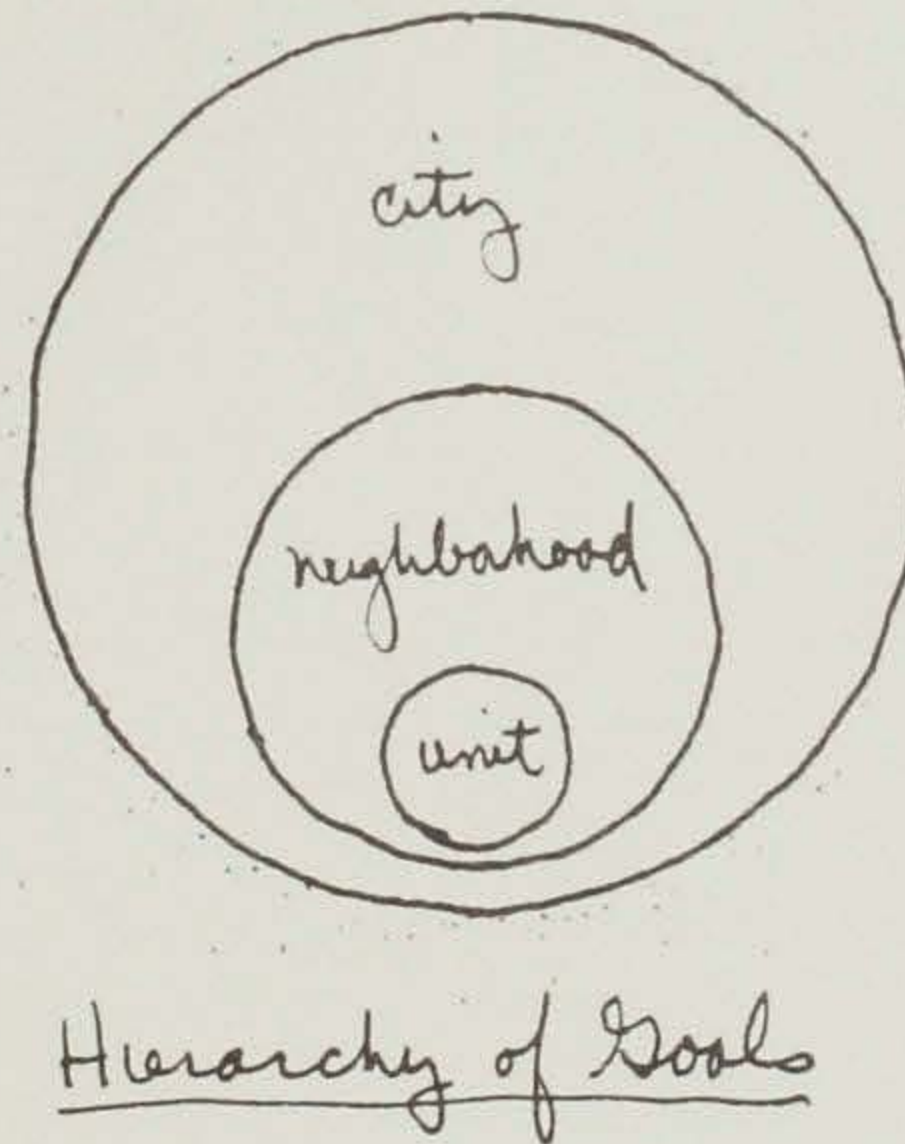 city
neighborhood
unit
Hierarchy of Goals